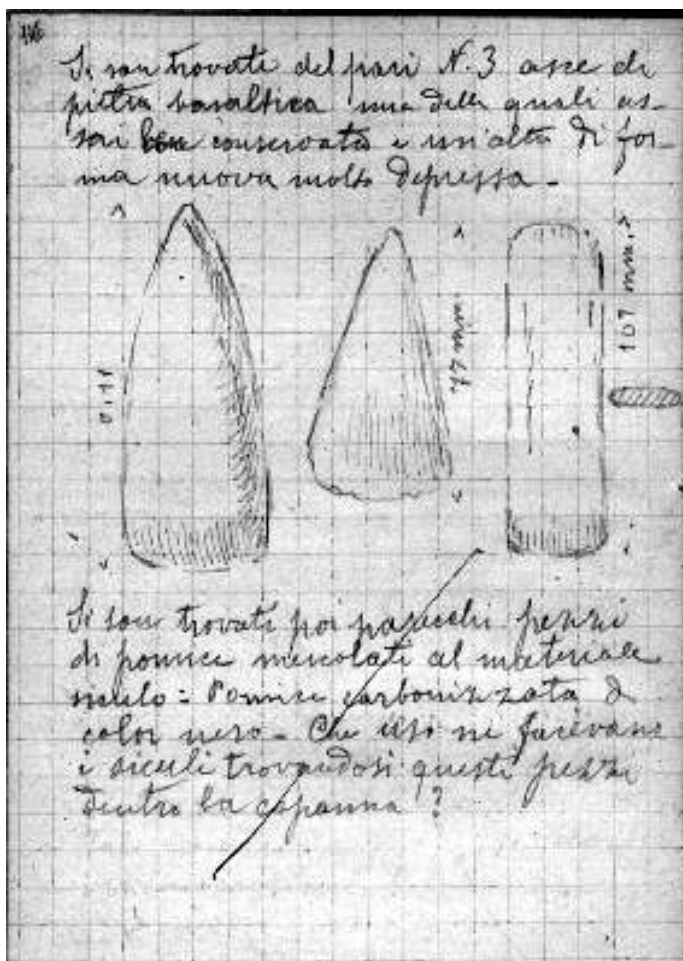 116
Si son trovate del pari N. 3 asce di
pietra basaltica una delle quali as-
sai ben conservata e un'altra di for-
ma nuova molto depressa -
0,11
77 mm
107 mm.
Si son trovati poi parecchi pezzi
di pomice mescolati al materiale
siculo = Pomice carbonizzata di
color nero - Che uso ne facevano
i siculi trovandosi questi pezzi
dentro la capanna ?